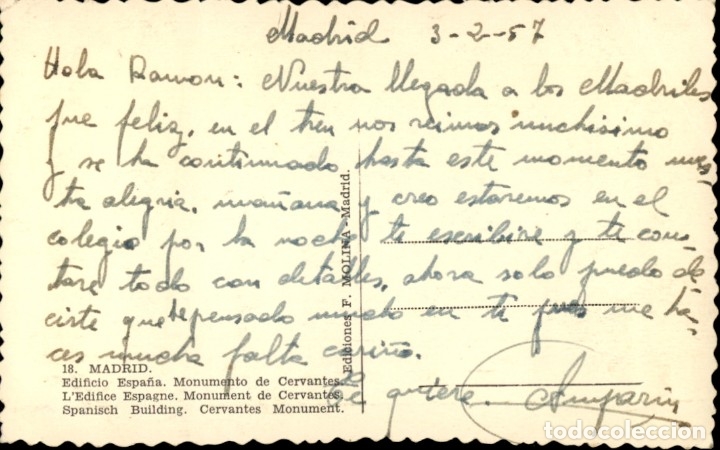 Madrid 3-2-57
Hola Ramon: Nuestra llegada a los Madriles
fue feliz, en el tren nos reimos muchisimo
y se ha continuado hasta este momento nues-
tra alegria, mañana y creo estaremos en el
colegio por la noche te escribire y te con-
tare todo con detalles, ahora solo puedo de-
cirte que he pensado mucho en ti pues me ha-
ces mucha falta cariño.
Te quiere. Amparin
18. MADRID.
Edificio España. Monumento de Cervantes.
L'Edifice Espagne. Monument de Cervantes.
Spanisch Building. Cervantes Monument.
Ediciones F. MOLINA - Madrid.
todocoleccion.net